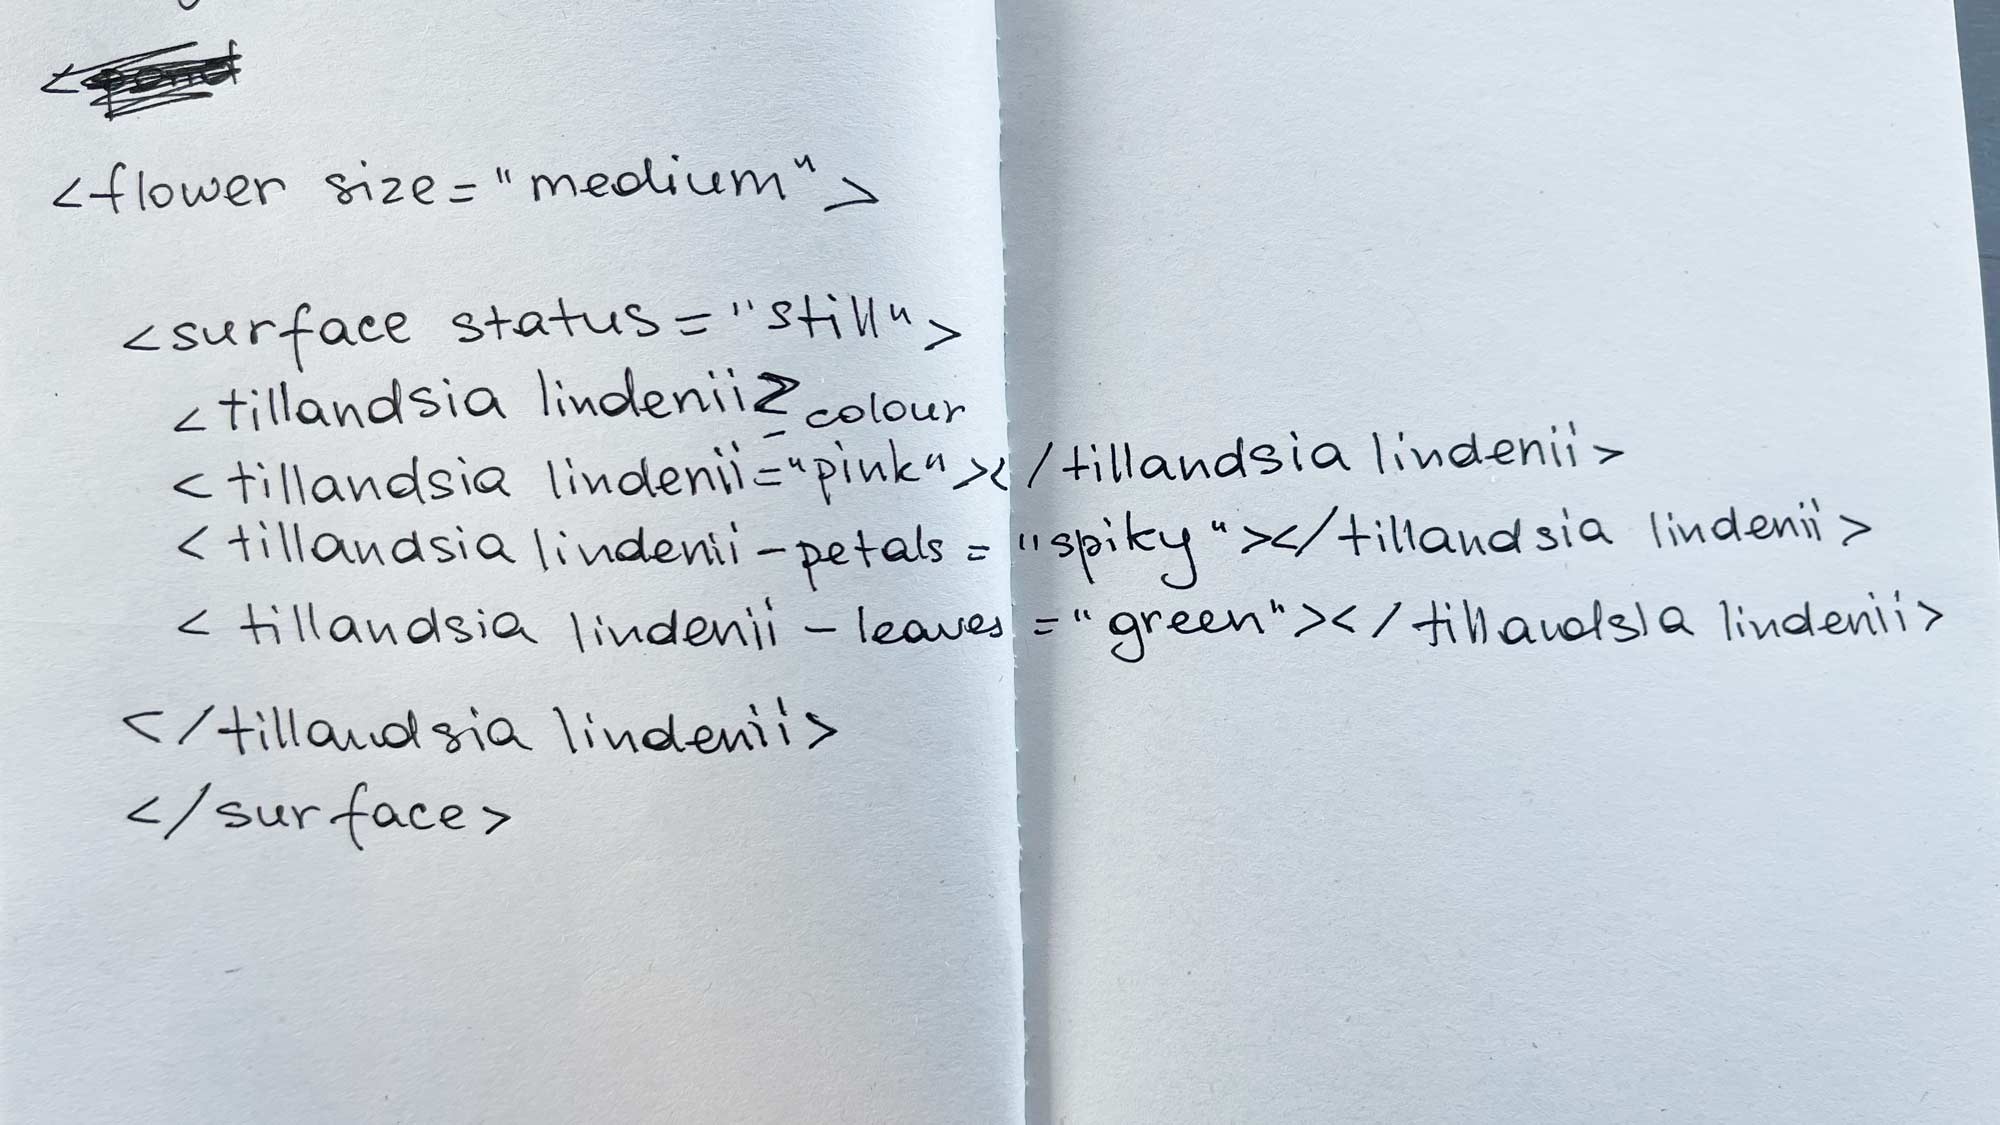 <flower size="medium">
<surface status="still">
<tillandsia lindenii>
<tillandsia lindenii-colour="pink"></tillandsia lindenii>
<tillandsia lindenii-petals="spiky"></tillandsia lindenii>
<tillandsia lindenii-leaves="green"></tillandsia lindenii>
</tillandsia lindenii>
</surface>